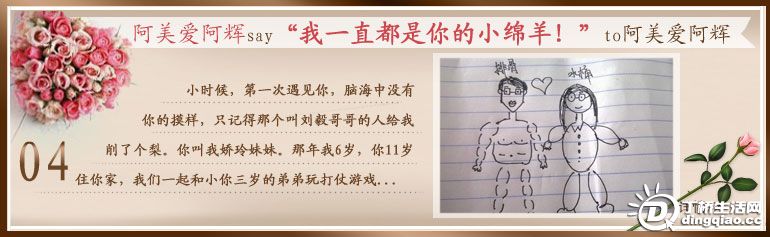 阿美爱阿辉say“我一直都是你的小绵羊！”to阿美爱阿辉
小时候，第一次遇见你，脑海中没有
你的摸样，只记得那个叫刘毅哥哥的人给我
削了个梨。你叫我娇玲妹妹。那年我6岁，你11岁
住你家，我们一起和小你三岁的弟弟玩打仗游戏...
04
排骨
水桶
丁桥生活网
dingqiao.cc